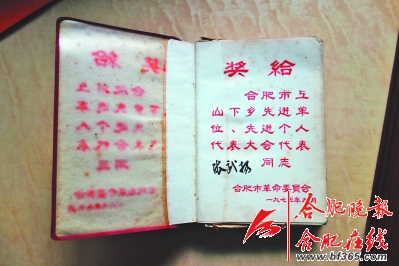 奖给
合肥市上
山下乡先进单
位、先进个人
代表大会代表
同志
合肥市革命委员会
一九七三年八月
合肥晚报
合肥在线
www.hf365.com